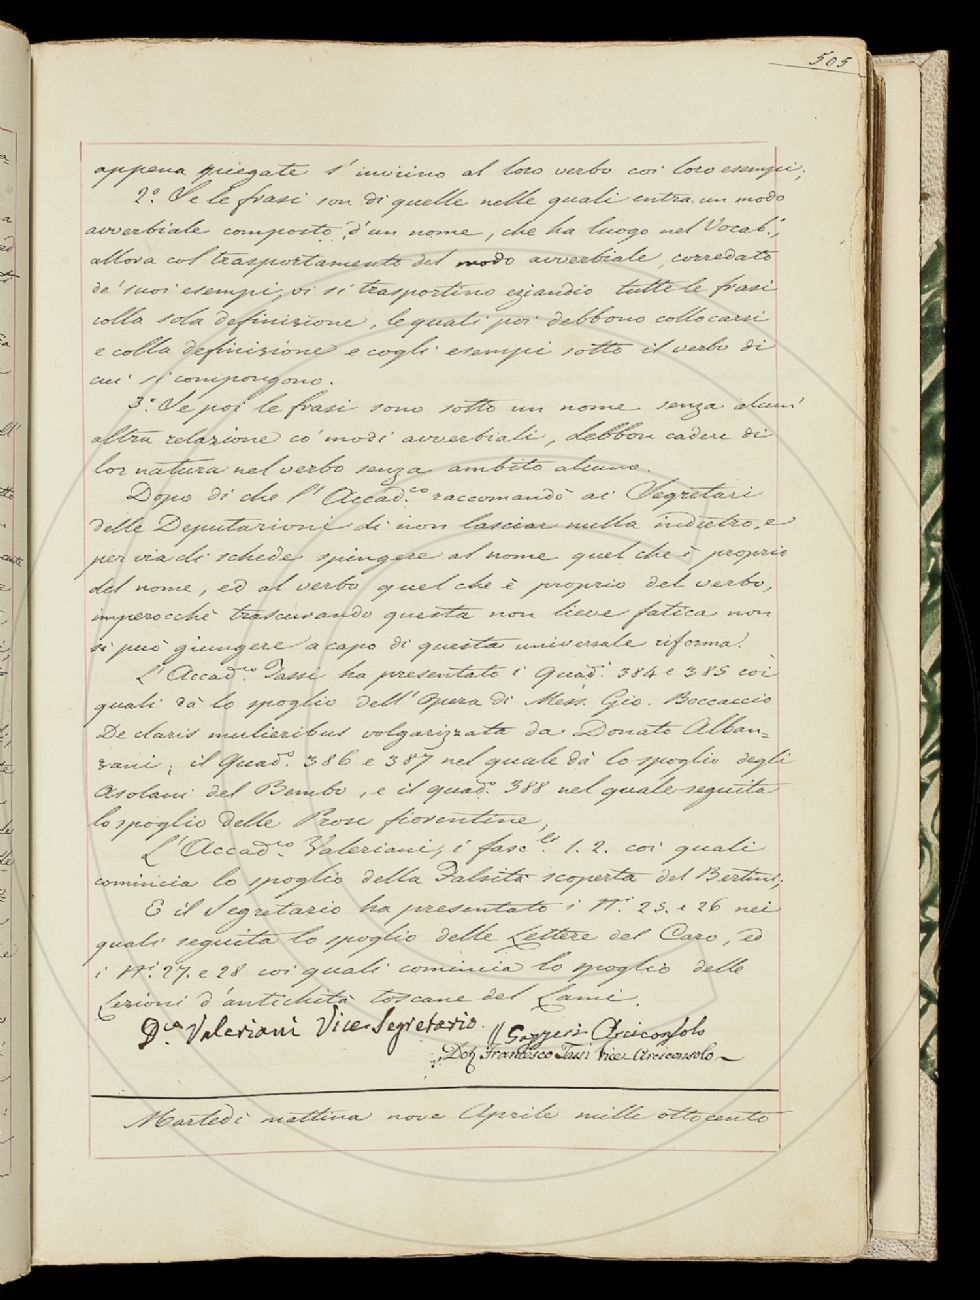 505
appena spiegate s'inviino al loro verbo coi loro esempi;
2.° Se le frasi son di quelle nelle quali entra un modo
avverbiale composto d'un nome, che ha luogo nel Vocab.°,
allora col trasportamento del modo avverbiale, corredato
de' suoi esempj, vi si trasportino eziandio tutte le frasi
colla sola definizione, le quali poi debbono collocarsi
e colla definizione e cogli esempj sotto il verbo di
cui si compongono.
3.° Se poi le frasi sono sotto un nome senza alcun'
altra relazione co' modi avverbiali, debbon cadere di
lor natura nel verbo senza ambito alcuno.
Dopo di che l'Accad.co raccomandò ai Segretari
delle Deputazioni di non lasciar nulla indietro, e
per via di schede spingere al nome quel che è proprio
del nome, ed al verbo quel che è proprio del verbo,
imperocchè trascurando questa non lieve fatica non
si può giungere a capo di questa universale riforma.
L'Accad.co Tassi ha presentato i Quad.i 384 e 385 coi
quali dà lo spoglio dell'Opera di Mess. Gio. Boccaccio
De claris mulieribus volgarizzata da Donato Alban=
zani; il Quad.° 386 e 387 nel quale dà lo spoglio degli
Asolani del Bembo, e il quad.° 388 nel quale seguita
lo spoglio delle Prose fiorentine;
L'Accad.co Valeriani, i fasc.li 1. 2. coi quali
comincia lo spoglio della Falsità scoperta del Bertini;
E il Segretario ha presentato i N.i 25. e 26 nei
quali seguita lo spoglio delle Lettere del Caro, ed
i N.i 27. e 28 coi quali comincia lo spoglio delle
Lezioni d'antichità toscane del Lami.
D.r Valeriani Vice Segretario.
Gazzeri Arciconsolo
Dott Francesco Tassi Vice Arciconsolo
Martedì mattina nove Aprile mille ottocento